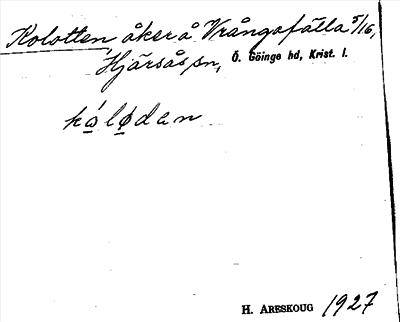 Kolotten åker å Vrångafälla 5/16,
Hjärsås sn, Ö. Göinge hd, Krist. l.
kàlǿdan
H. Areskoug 1927